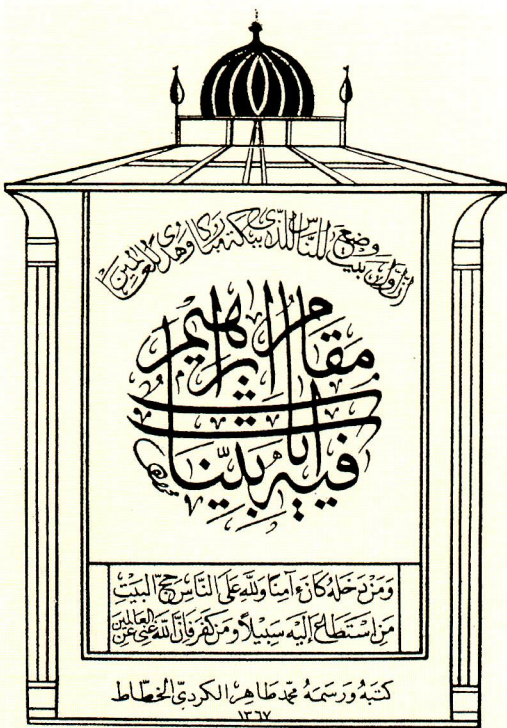 إن أول بيت وضع للناس للذي ببكة مباركا وهدى للعالمين
فيه آيات بينات
مقام إبراهيم
وَمَنْ دَخَلَهُ كَانَ آمِنًا وَلِلَّهِ عَلَى النَّاسِ حِجُّ الْبَيْتِ
مَنِ اسْتَطَاعَ إِلَيْهِ سَبِيلًا وَمَنْ كَفَرَ فَإِنَّ اللَّهَ غَنِيٌّ عَنِ الْعَالَمِينَ
كتبه ورسمه محمد طاهر الكردي الخطاط
١٣٦٧